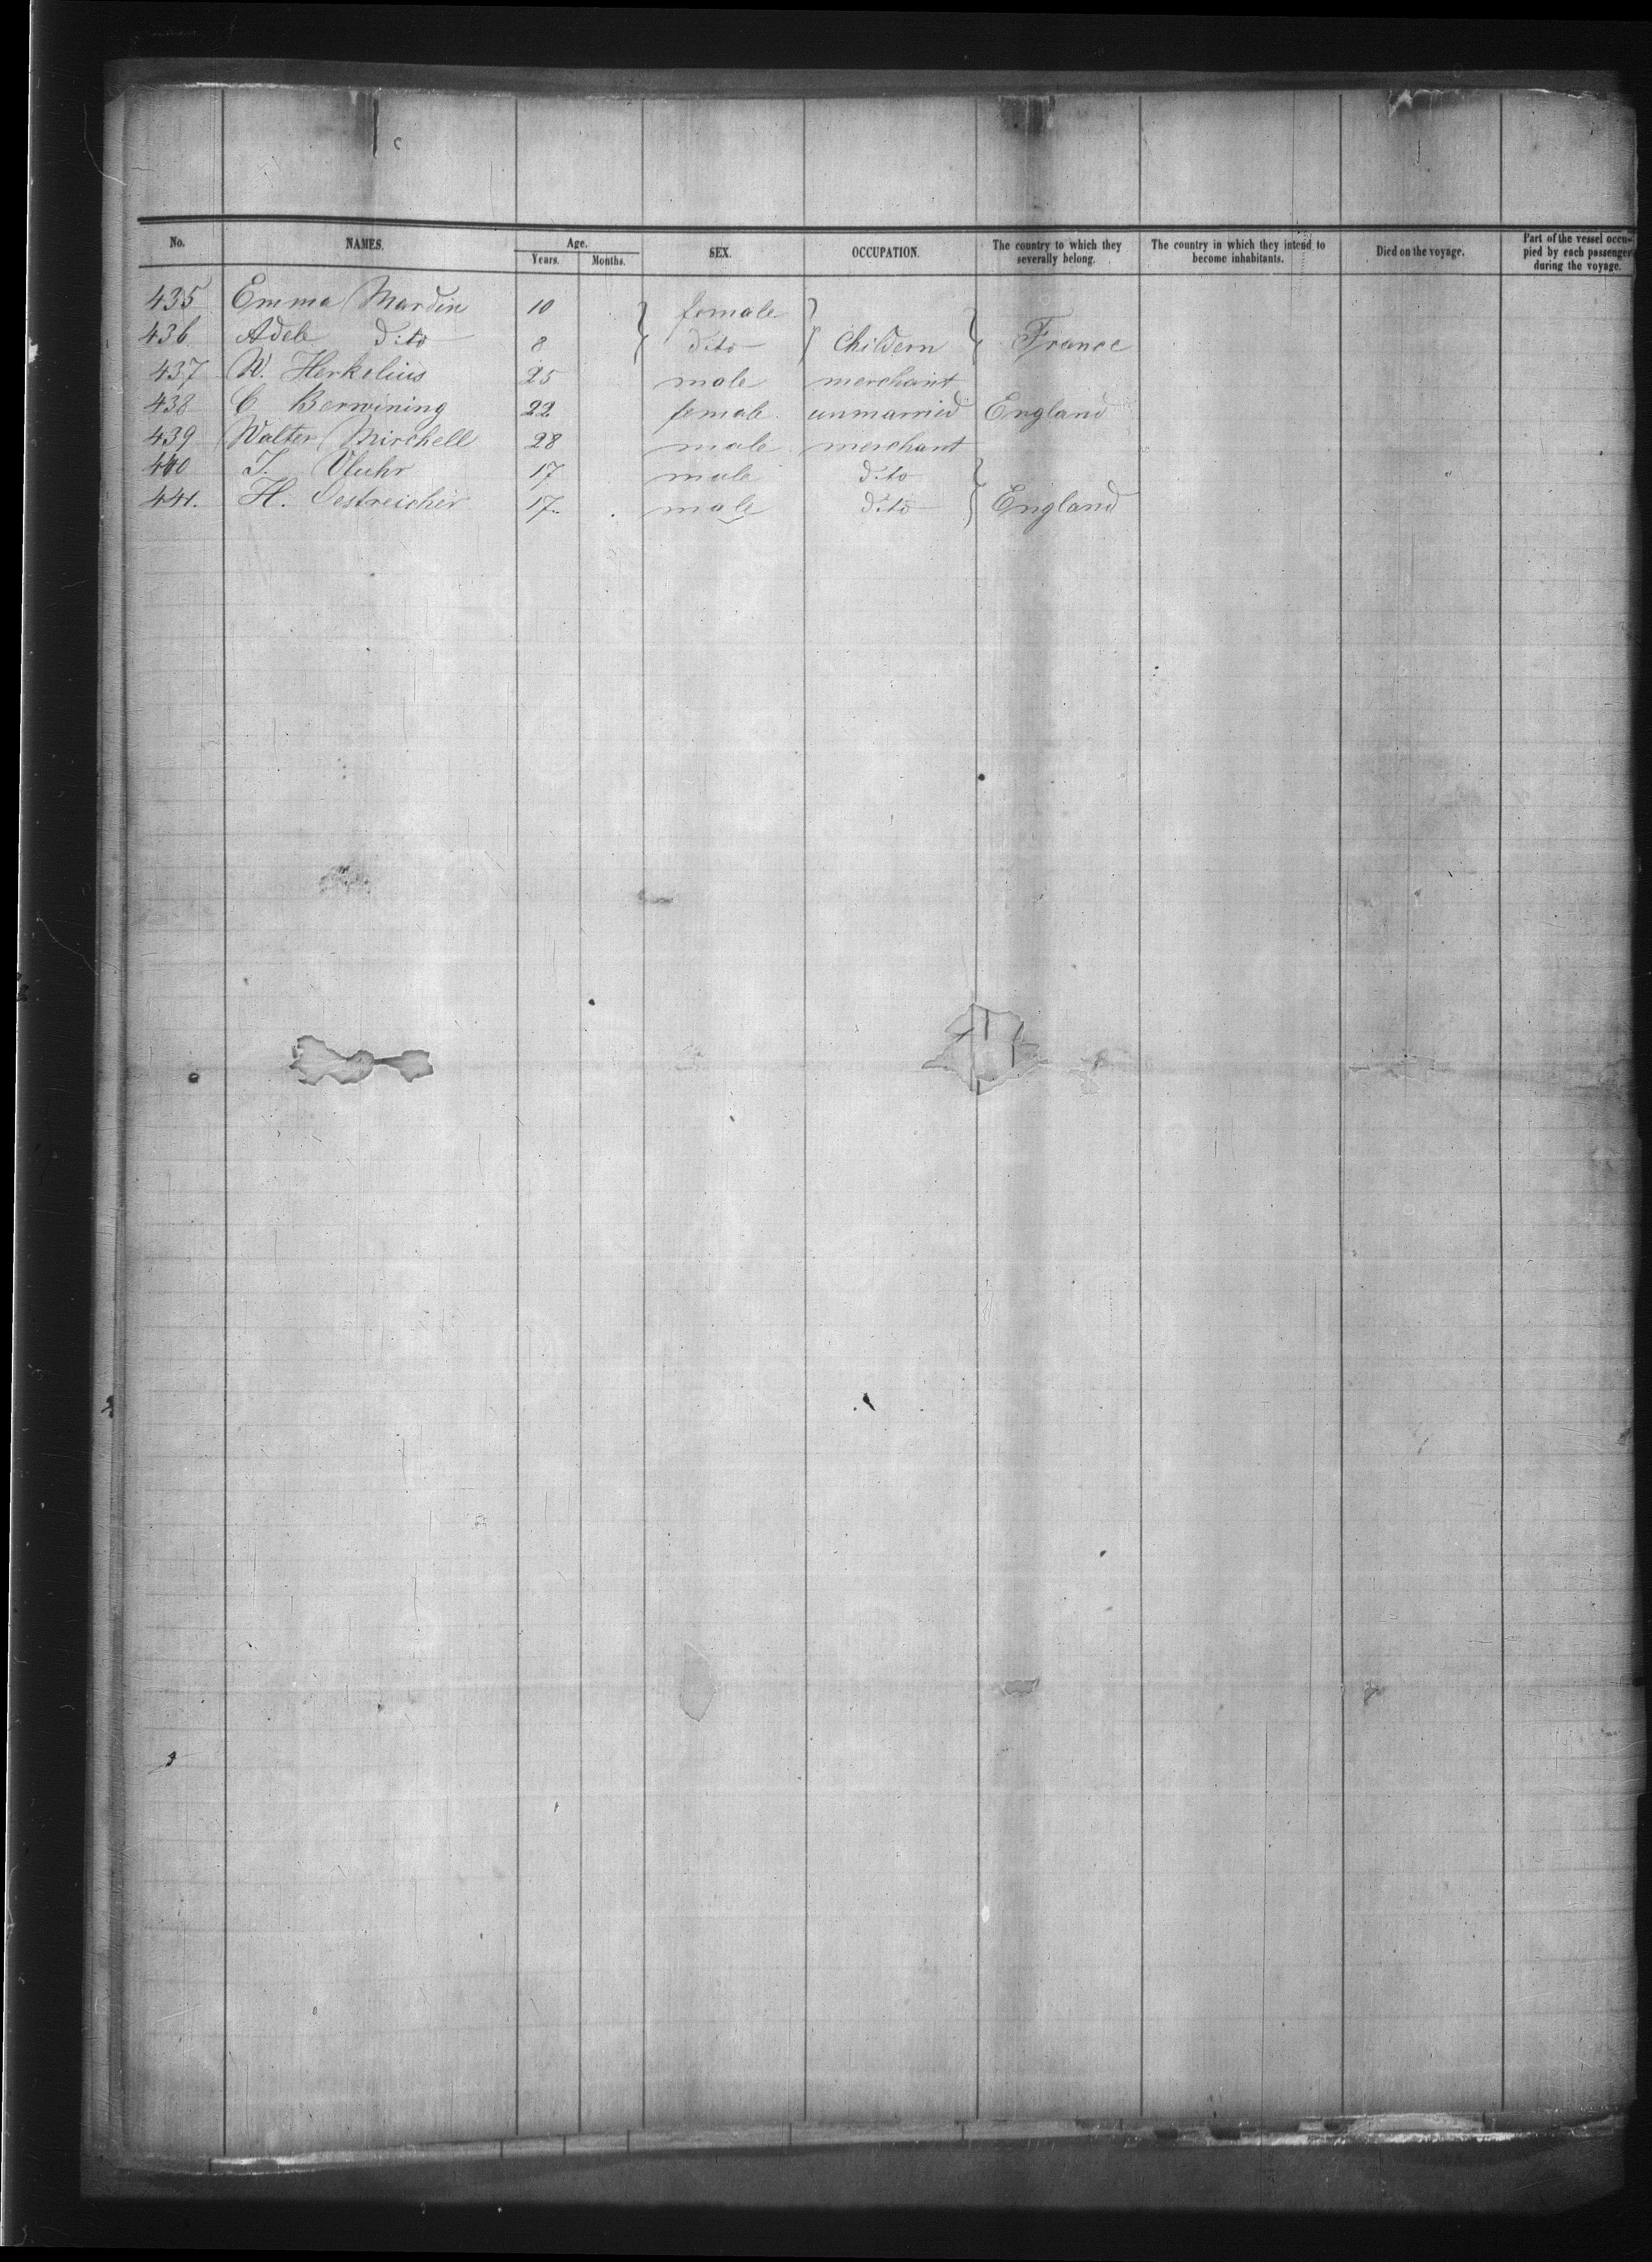 No. NAMES. Age. Years. Months. SEX. OCCUPATION. The country to which they severally belong. The country in which they intend to become inhabitants. Died on the voyage. Part of the vessel occupied by each passenger during the voyage.
435 Emma Mardin 10 female
436 Adele dito 8 dito Childern France
437 W. Herkelius 25 male merchant
438 C Berwining 22 female unmarried England
439 Walter Mirchell 28 male merchant
440 J. Vluhr 17 male dito
441. H. Oestreicher 17 male dito England